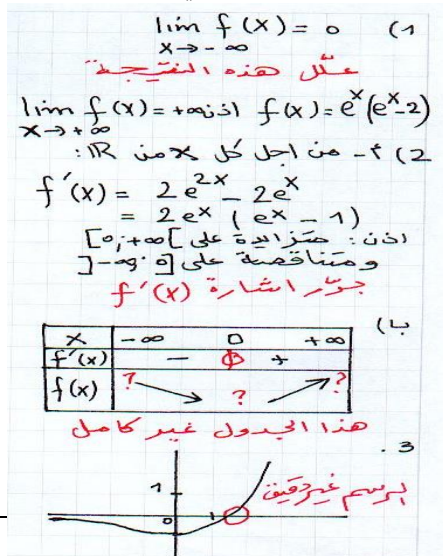 1) lim f(x) = 0
x→-∞
علّل هذه النتيجة
lim f(x)=+∞ اذن f(x)=e^x(e^x-2)
x→+∞
2) أ- من اجل كل x من ℝ:
f'(x) = 2e^{2x} - 2e^x
= 2e^x (e^x - 1)
اذن: متزايدة على [0;+∞[
ومتناقصة على ]-∞;0]
جرّر اشارة f'(x)
ب)
x -∞ 0 +∞
f'(x) - 0 +
f(x) ? ? ?
هذا الجدول غير كامل
3.
الرسم غير دقيق
1
0 1